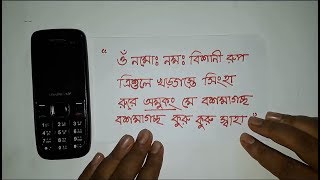 ওঁ নমোঃ নমঃ বিশানী রুপ
ত্রিশুলে খড়্গহস্তে সিংহা
রুরে অমুকং মে বশমাগচ্ছ
বশমাগচ্ছ কুরু কুরু স্বাহা